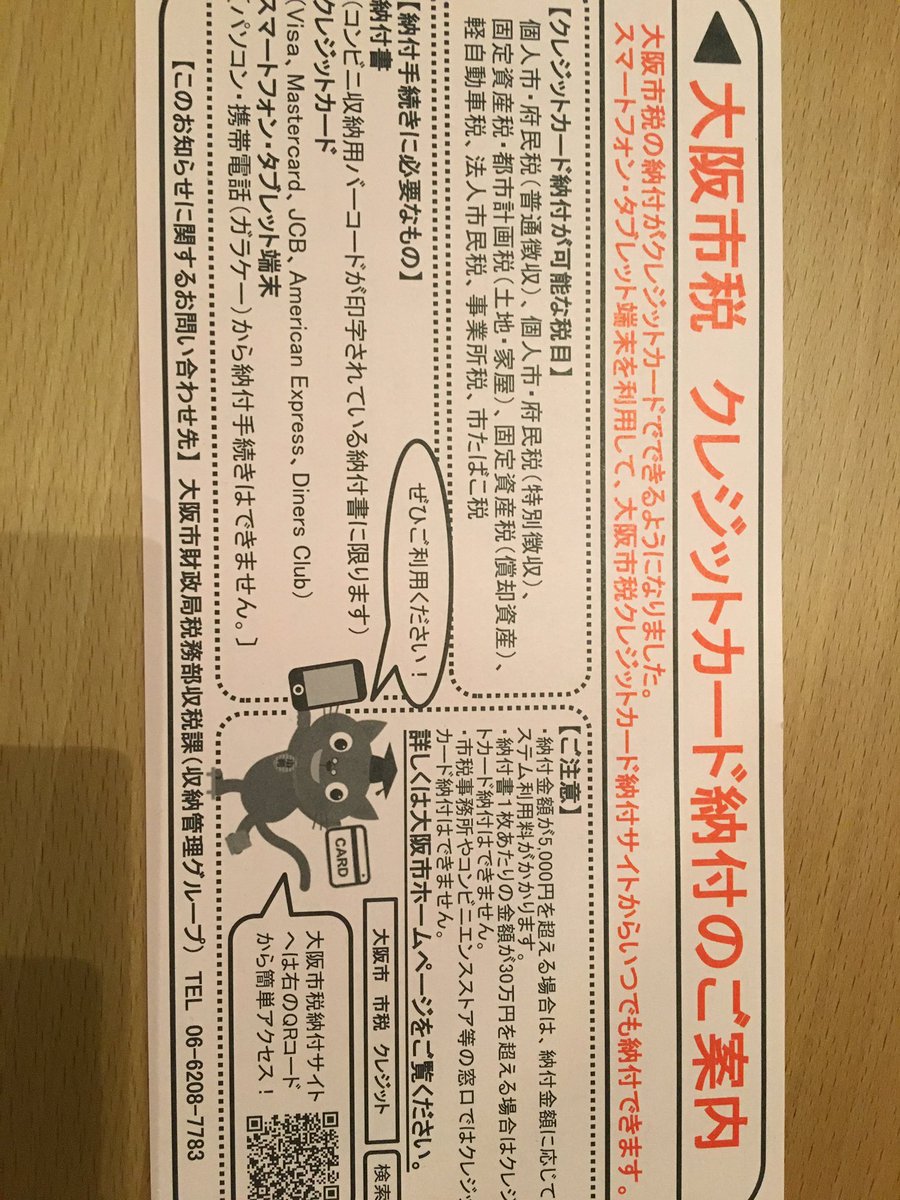 大阪市税 クレジットカード納付のご案内
大阪市税の納付がクレジットカードでできるようになりました。
スマートフォン・タブレット端末を利用して、大阪市税クレジットカード納付サイトからいつでも納付できます。
【クレジットカード納付が可能な税目】
個人市・府民税(普通徴収)、個人市・府民税(特別徴収)、
固定資産税・都市計画税(土地・家屋)、固定資産税(償却資産)、
軽自動車税、法人市民税、事業所税、市たばこ税
【納付手続きに必要なもの】
納付書
(コンビニ収納用バーコードが印字されている納付書に限ります)
クレジットカード
(Visa、Mastercard、JCB、American Express、Diners Club)
スマートフォン・タブレット端末
[パソコン・携帯電話(ガラケー)から納付手続きはできません。]
ぜひご利用ください!
【ご注意】
・納付金額が5,000円を超える場合は、納付金額に応じて
ステム利用料がかかります。
・納付書1枚あたりの金額が30万円を超える場合はクレジ
トカード納付はできません。
・市税事務所やコンビニエンスストア等の窓口ではクレジッ
カード納付はできません。
詳しくは大阪市ホームページをご覧ください。
大阪市 市税 クレジット
検索
CARD
大阪市税納付サイト
へは右のQRコード
から簡単アクセス!
【このお知らせに関するお問い合わせ先】 大阪市財政局税務部収税課(収納管理グループ) TEL 06-6208-7783